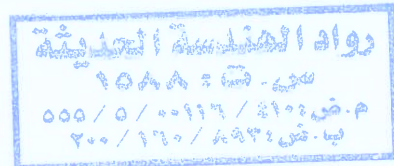 رواد الهندسة الحديثة
س.ت: ١٥٨٨
م.ض: ٤١٠٤ / ٠٠١١٦ / ٥ / ٥٥٥
ب.ض: ٨٩٣٤ / ١٦٠ / ٢٠٠